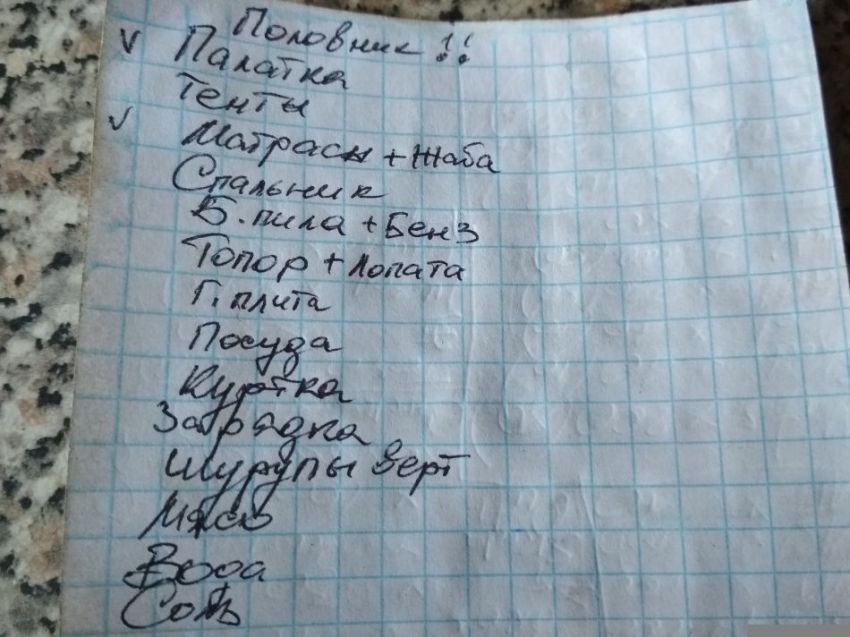 Половник !!
✓ Палатка
Тенты
✓ Матрасы + Жаба
Спальник
Б. пила + Бенз
Топор + Лопата
Г. плита
Посуда
Куртка
Зарядка
Шурупы верт
Мясо
Вода
Соль